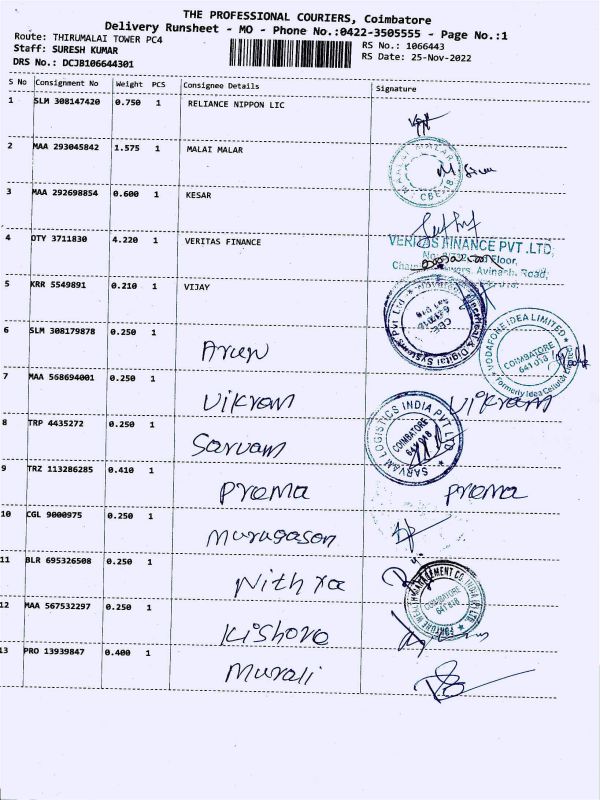 THE PROFESSIONAL COURIERS, Coimbatore
Delivery Runsheet - MO - Phone No.:0422-3505555 - Page No.:1
Route: THIRUMALAI TOWER PC4
RS No.: 1066443
Staff: SURESH KUMAR
RS Date: 25-Nov-2022
DRS No.: DCJB106644301
S No Consignment No Weight PCS Consignee Details Signature
1 SLM 308147420 0.750 1 RELIANCE NIPPON LIC
2 MAA 293045842 1.575 1 MALAI MALAR
MAALAI MALAR CBE-18
3 MAA 292698854 0.600 1 KESAR
4 OTY 3711830 4.220 1 VERITAS FINANCE
VERITAS FINANCE PVT .LTD,
Floor,
Avinash. Road,
5 KRR 5549891 0.210 1 VIJAY
Electrical & Digital Systems Pvt Ltd
CBE
6 SLM 308179878 0.250 1 Arun
VODAFONE IDEA LIMITED
COIMBATORE
641 018
Formerly Idea Cellular
7 MAA 568694001 0.250 1 Vikram Vikram
8 TRP 4435272 0.250 1 Sarvam
SARVAM LOGISTICS INDIA PVT LTD
COIMBATORE
641 018
9 TRZ 113286285 0.410 1 Prema Prema
10 CGL 9000975 0.250 1 Murugasan
11 BLR 695326508 0.250 1 Nithra
FORTUNE WEALTH MANAGEMENT CO. INDIA (P) LTD
COIMBATORE
641 018
12 MAA 567532297 0.250 1 Kishore
13 PRO 13939847 0.400 1 Murali